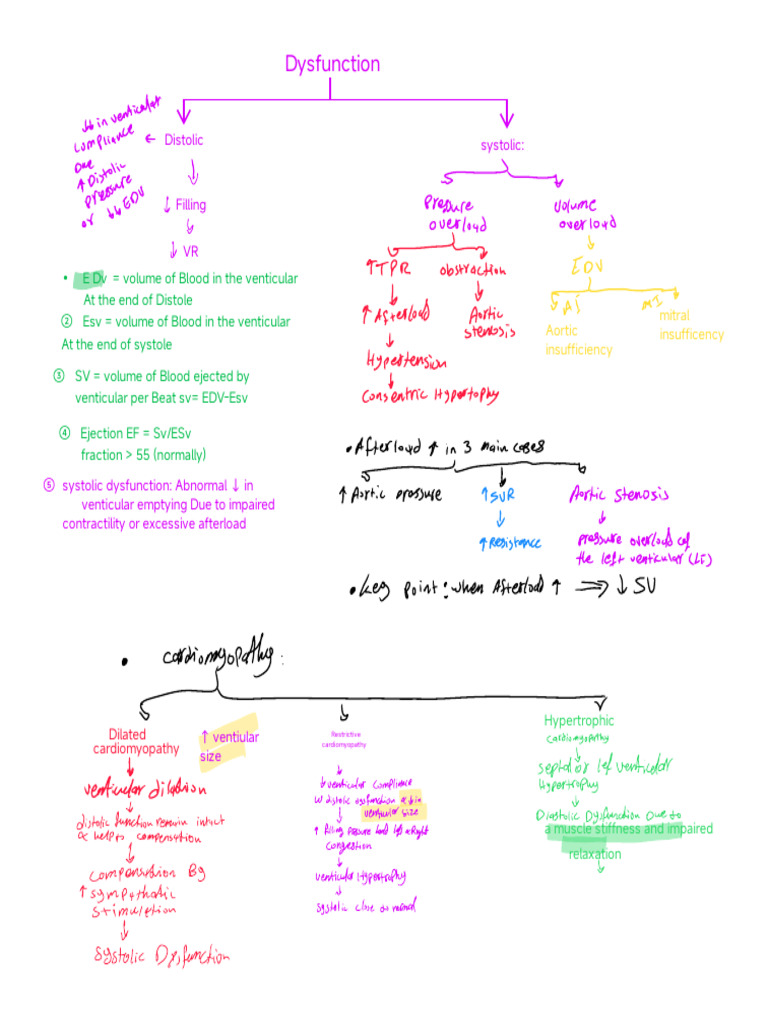 Dysfunction
↓↓ in venticular
compliance
Due
↑ Distolic
pressure
or ↓↓ EDV
← Distolic
↓ Filling
↓ VR
• EDv = volume of Blood in the venticular
At the end of Distole
② Esv = volume of Blood in the venticular
At the end of systole
③ SV = volume of Blood ejected by
venticular per Beat sv= EDV-Esv
④ Ejection EF = Sv/ESv
fraction > 55 (normally)
⑤ systolic dysfunction: Abnormal ↓ in
venticular emptying Due to impaired
contractility or excessive afterload
systolic:
pressure
overload
volume
overload
↑TPR
obstraction
EDV
↑ Afterload
Aortic
stenosis
AI
MI
Aortic
insufficiency
mitral
insufficency
Hypertension
Consentric Hypertophy
• Afterload ↑ in 3 main cases
↑ Aortic pressure
↑ SVR
Aortic stenosis
↑ Resistance
pressure overload of
the left venticular
• key point: when Afterload ↑ ⇒ ↓ SV
• cardiomyopathy:
Dilated
cardiomyopathy
↑ ventiular
size
venticular dilation
distolic function remain intact
& help to compensation
compensation By
↑ sympathatic
stimuletion
systolic Dysfunction
Restrictive
cardiomyopathy
↓ venticular compliance
distolic dysfunction
venticular size
↑ filling pressure
congestion
venticular Hypertrophy
systolic close to normal
Hypertrophic
cardiomyopathy
septal or lef venticular
Hypertrophy
Diastolic Dysfunction Due to
a muscle stiffness and impaired
relaxation